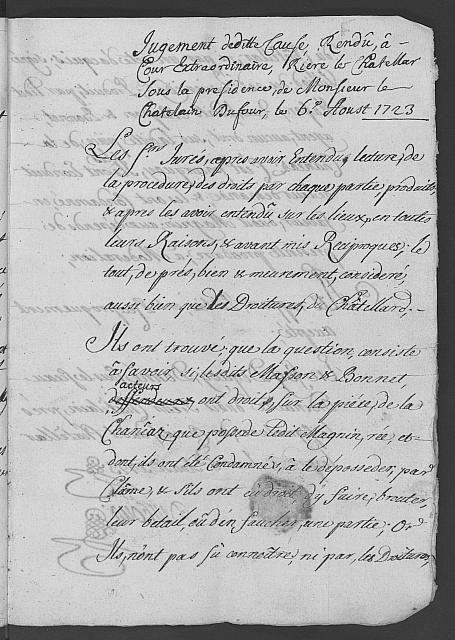 Jugement deditte Cause, Rendû, à
Cour Extraordinaire, Riere le Châtellar
Sous la presidence, de Monsieur le
Châtelain Dufour, le 6.e Aoust 1723
Les Srs Jurés, apres avoir Entendu, lecture, de
la procedure, des droits par chaque partie produits,
& apres les avoir entendû sur les lieux, en toutes
leurs Raisons, & avant mis Reciproques; le
tout, de prés, bien & meurement, consideré,
aussi bien que les Droitures, du Châtellard,
Ils ont trouvé; que la question, consiste
à Savoir si, lesdits Masson & Bonnet
acteurs
deffendeurs, ont droit, sur la piéce, de la
Chaniaz, que possede ledit Magnin, rée, et
dont, ils ont été Condamnés, à le deposseder, par
Clâme, & s'ils ont eu droit d'y faire, brouter,
leur betail, oû d'en faucher, une partie; Or
Ils, n'ont pas sû connoître, ni par, les Droitures,